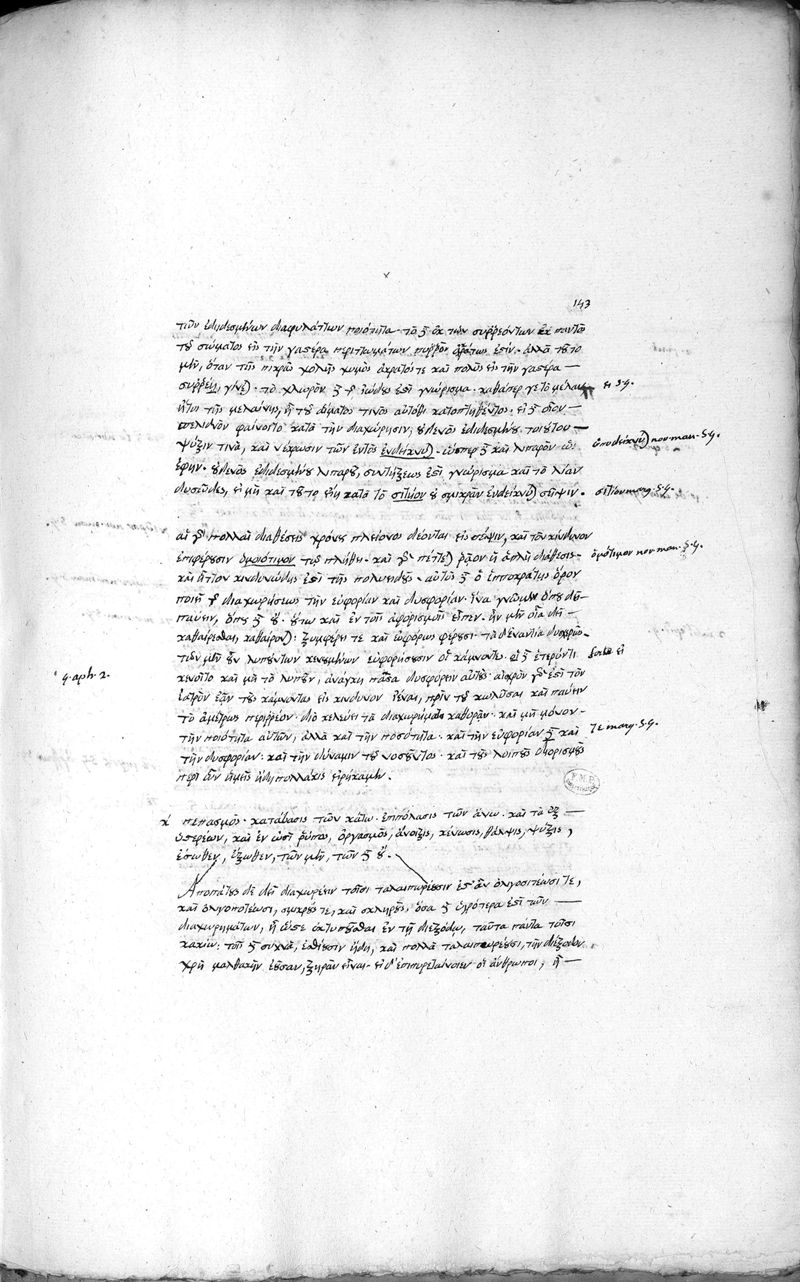 143
τῶν ἐδηδεσμένων διαφυλάττων ποιότητα· τὸ δὲ ἐκ τῶν συρρεόντων ἐκ παντὸς
τοῦ σώματος εἰς τὴν γαστέρα περιττωμάτων πυρρὸν ἀκράτως ἐστίν· ἀλλὰ τοῦτο
μὲν, ὅταν τῆς πικρᾶς χολῆς χυμὸς ἄκρατός τε καὶ πολὺς εἰς τὴν γαστέρα
συρρέῃ, γίνεται· τὸ χλωρὸν δὲ τῆς ἰώδους ἐστὶ γνώρισμα· καθάπερ γε τὸ μέλαν
ἤτοι τῆς μελαίνης, ἢ τοῦ αἵματος τινὸς αὐτόθι κατοπτηθέντος· εἰ δὲ οἷον
πελιδνὸν φαίνοιτο κατὰ τὴν διαχώρησιν, οὐδενὸς ἐδηδεσμένου τοιούτου
ψύξιν τινὰ, καὶ νέκρωσιν τῶν ἐντὸς ἐνδείκνυται· ὥσπερ δὲ καὶ λιπαρὸν ὡς
ἔφην· οὐδενὸς ἐδηδεσμένου λιπαροῦ, συντήξεως ἐστὶ γνώρισμα καὶ τὸ λίαν
δυσῶδες, εἰ μὴ καὶ τοῦτο εἴη κατὰ τὸ σιτίον οὐ σμικρὰν ἐνδείκνυται σῆψιν·
αἱ γὰρ πολλαὶ διαθέσεις χρόνου πλείονος δέονται εἰς πέψιν, καὶ τὸν κίνδυνον
ἐπιφέρουσιν ὁμοιότιμον τῷ πλήθει· καὶ γὰρ πέττεται ῥᾷον ἡ ἁπλῆ διάθεσις·
καὶ ἧττον κινδυνώδης ἐστὶ τῆς πολυειδοῦς· αὐτὸς δὲ ὁ ἱπποκράτης ὅρον
ποιεῖ τῆς διαχωρήσεως τὴν εὐφορίαν καὶ δυσφορίαν· ἵνα γνῶμεν ὅπου δεῖ
παύειν, ὅπου δὲ οὔ· οὕτω καὶ ἐν τοῖς ἀφορισμοῖς εἶπεν· ἢν μὲν οἷα δεῖ
καθαίρεσθαι, καθαίρωνται: ξυμφέρει τε καὶ εὐφόρως φέρουσι· τὰ δ' ἐναντία δυσχερῶς·
τῶν μὲν οὖν λυπούντων κενουμένων εὐφορήσουσιν οἱ κάμνοντες· εἰ δὲ ἕτερόν τι
κενοῖτο καὶ μὴ τὸ λυποῦν, ἀνάγκη πᾶσα δυσφορεῖν αὐτούς· αἰσχρὸν γάρ ἐστι τὸν
ἰατρὸν ἐᾶν τοὺς κάμνοντας εἰς κίνδυνον ἰέναι, πρὶν τοῦ κωλῦσαι καὶ παύειν
τὸ ἀμέτρως περιρρέον· διὸ κελεύει τὰ διαχωρήματα καθορᾶν· καὶ μὴ μόνον
τὴν ποιότητα αὐτῶν, ἀλλὰ καὶ τὴν ποσότητα· καὶ τὴν εὐφορίαν δὲ καὶ
τὴν δυσφορίαν: καὶ τὴν δύναμιν τοῦ νοσοῦντος· καὶ τοὺς λοιποὺς διορισμοὺς
περὶ ὧν ἡμεῖς ἤδη πολλάκις εἰρήκαμεν.
πεπασμός· κατάβασις τῶν κάτω· ἐπιπόλασις τῶν ἄνω· καὶ τὰ ἐξ
ὑστερέων, καὶ ἐν ὠσὶ ῥύπος, ὀργασμὸς, ἄνοιξις, κένωσις, θάλψις, ψύξις,
ἔσωθεν, ἔξωθεν, τῶν μὲν, τῶν δὲ οὔ.
Ἀποπάτους δὲ δεῖ διαχωρέειν τοῖσι ταλαιπωρέουσιν ἔστ' ἂν ὀλιγοσιτέωσί τε,
καὶ ὀλιγοποτέωσι, σμικρούς τε, καὶ σκληρούς, ὅσα δὲ ὑγρότερα ἐστὶ τῶν
διαχωρημάτων, ἢ ὥστε ἐκτυποῦσθαι ἐν τῇ διεξόδῳ, ταῦτα πάντα τοῖσι
κακίω: τοῖς δὲ συχνὰ, ἐσθίουσιν ἤδη, καὶ πολλὰ ταλαιπωρέουσι, τὴν διέξοδον
χρὴ μαλθακὴν ἐοῦσαν, ξηρὰν εἶναι· εἰ δ' ἐπιπυρεταίνοιεν οἱ ἄνθρωποι, ἢ
εἰ 59.
ὑποδείκνυται nov. man. 59.
σιτίον marg. 59.
ὁμότιμον nov. man. 59.
τε marg. 59.
4. aph. 2.